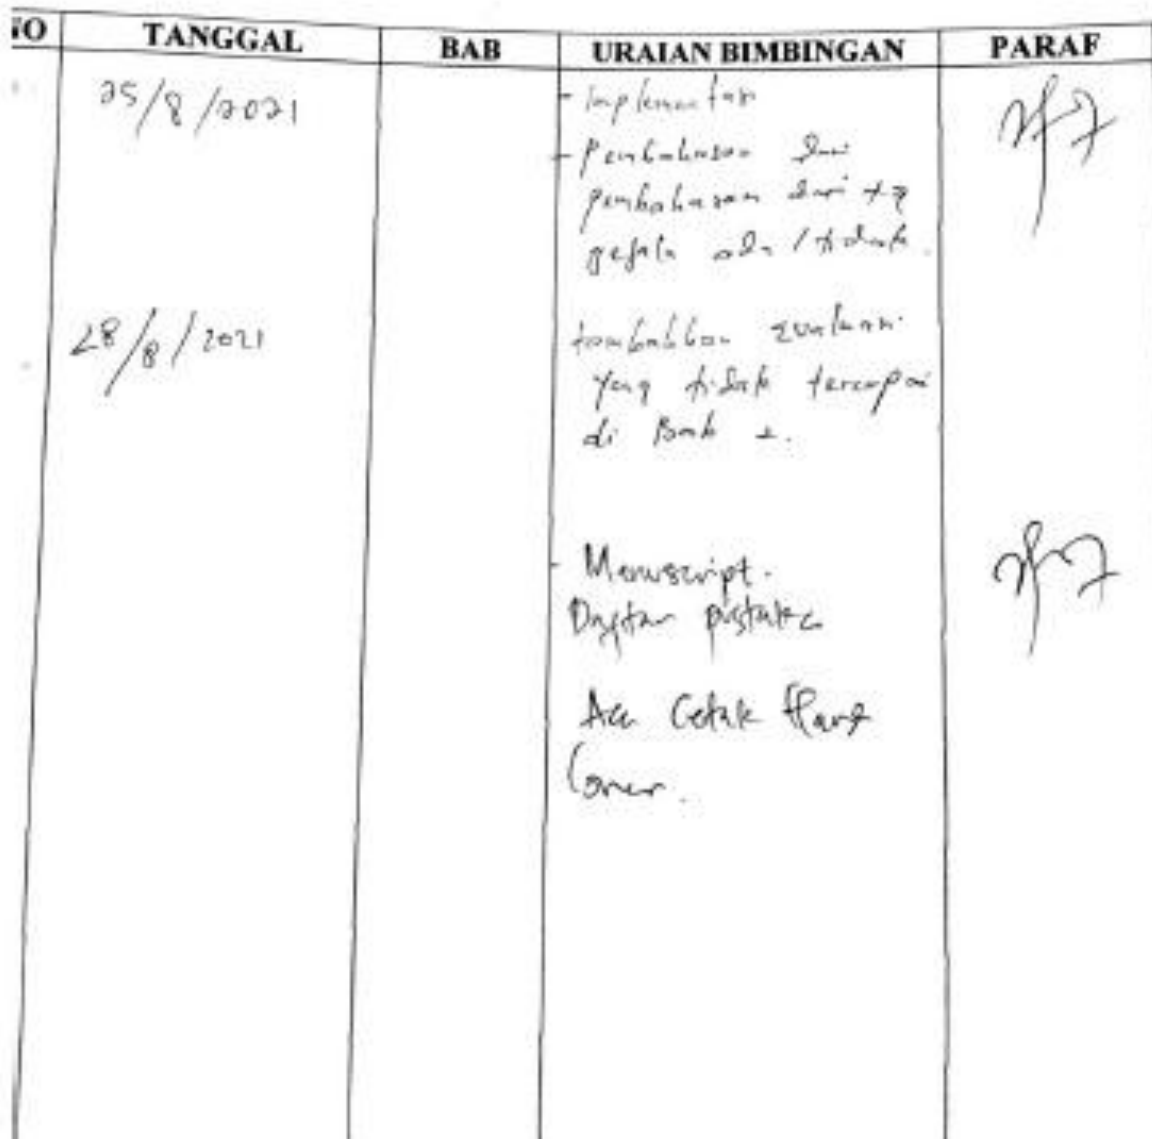 NO TANGGAL BAB URAIAN BIMBINGAN PARAF
25/8/2021 - Implementasi
- Pembahasan dari
pembahasan dari tg
gejala ada / tidak.
28/8/2021 tambahkan evaluasi
yang tidak tercapai
di Bab
- Manuscript.
Daftar pustaka
Acc Cetak Hard
Cover.